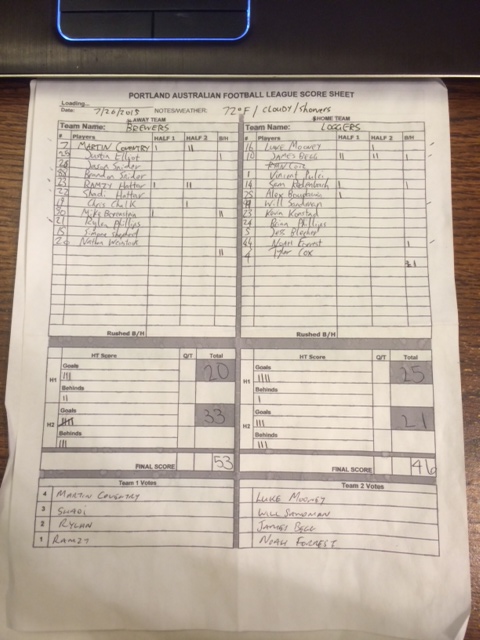 PORTLAND AUSTRALIAN FOOTBALL LEAGUE SCORE SHEET
Loading...
Date: 7/26/2015 NOTES/WEATHER: 72°F / CLOUDY/Showers
AWAY TEAM HOME TEAM
Team Name: BREWERS Team Name: LOGGERS
# Players HALF 1 HALF 2 B/H # Players HALF 1 HALF 2 B/H
7 MARTIN COVENTRY 16 LUKE MOONEY
Justin Elliot 10 JAMES BEGG
Jason Snider
Brandon Snider 1 Vincent
23 RAMZY Hattar 14 Sam
22 Shadi Hattar 25 Alex
Chris Chalk Will Sandman
30 Mike Bernstein 23 Kevin
21 Rylan Phillips 24 Brian Phillips
15 Simone Shepherd 5 Jeff
20 Nathan 44 Noah Forrest
4 Tyler Cox
Rushed B/H Rushed B/H
HT Score Q/T Total HT Score Q/T Total
H1 Goals III 20 H1 Goals IIII 25
Behinds II Behinds I
H2 Goals 33 H2 Goals III 21
Behinds III Behinds III
FINAL SCORE 53 FINAL SCORE 46
Team 1 Votes Team 2 Votes
4 MARTIN COVENTRY LUKE MOONEY
3 SHADI WILL SANDMAN
2 RYLAN JAMES BEGG
1 RAMZY NOAH FORREST